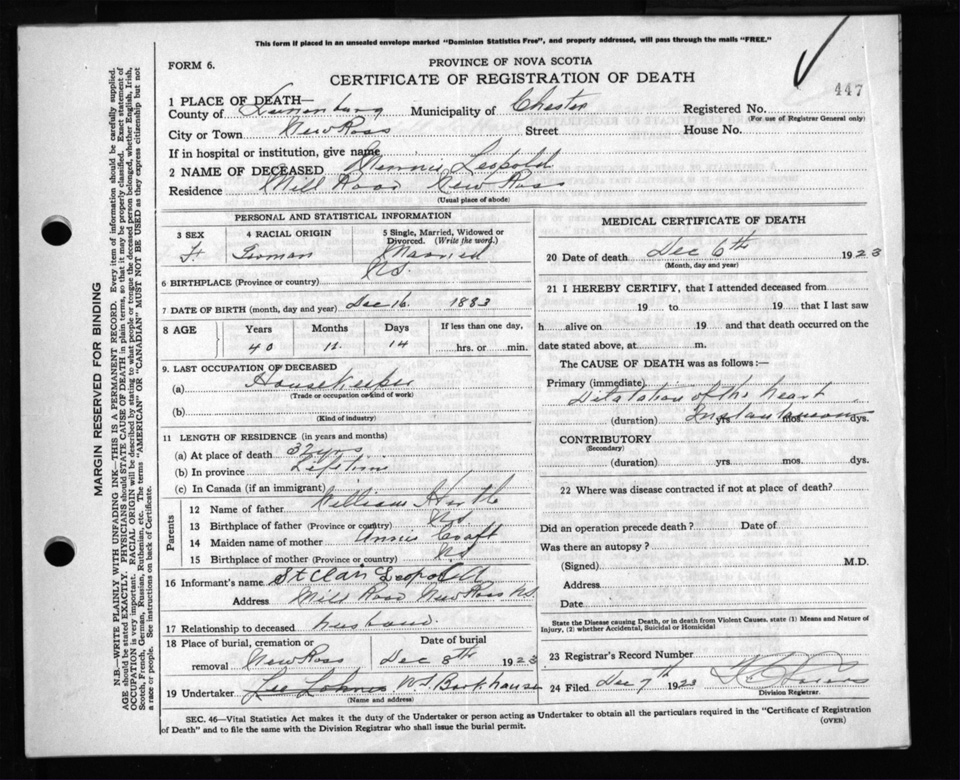 This form if placed in an unsealed envelope marked "Dominion Statistics Free", and properly addressed, will pass through the mails "FREE."
FORM 6.
PROVINCE OF NOVA SCOTIA
CERTIFICATE OF REGISTRATION OF DEATH
447
1 PLACE OF DEATH—
County of Lunenburg Municipality of Chester Registered No.
(For use of Registrar General only)
City or Town New Ross Street House No.
If in hospital or institution, give name
2 NAME OF DECEASED Minnie Leopold
Residence Mill Road New Ross
(Usual place of abode)
PERSONAL AND STATISTICAL INFORMATION
3 SEX 4 RACIAL ORIGIN 5 Single, Married, Widowed or Divorced. (Write the word.)
F German Married
6 BIRTHPLACE (Province or country) NS.
7 DATE OF BIRTH (month, day and year) Dec 16 1883
8 AGE Years Months Days If less than one day,
40 11 14 hrs. or min.
9. LAST OCCUPATION OF DECEASED
(a) Housekeeper
(Trade or occupation or kind of work)
(b)
(Kind of industry)
11 LENGTH OF RESIDENCE (in years and months)
(a) At place of death yrs
(b) In province Lifetime
(c) In Canada (if an immigrant)
Parents
12 Name of father William
13 Birthplace of father (Province or country) NS
14 Maiden name of mother Annie Croft
15 Birthplace of mother (Province or country) NS
16 Informant's name St Clair Leopold
Address Mill Road New Ross NS.
17 Relationship to deceased husband.
18 Place of burial, cremation or removal New Ross Date of burial Dec 8th 1923
19 Undertaker Lee Lohnes W.S. Barkhouse
(Name and address)
MEDICAL CERTIFICATE OF DEATH
20 Date of death Dec 6th 1923
(Month, day and year)
21 I HEREBY CERTIFY, that I attended deceased from
19 to 19 that I last saw
h alive on 19 and that death occurred on
date stated above, at m.
The CAUSE OF DEATH was as follows:—
Primary (immediate) Dilatation of the heart
(duration) Instantaneous yrs. mos. dys.
CONTRIBUTORY
(Secondary)
(duration) yrs. mos. dys.
22 Where was disease contracted if not at place of death?
Did an operation precede death? Date of
Was there an autopsy?
(Signed) M.D.
Address
Date
State the Disease causing Death, or in death from Violent Causes, state (1) Means and Nature of
Injury, (2) whether Accidental, Suicidal or Homicidal
23 Registrar's Record Number
24 Filed Dec 7th 1923
Division Registrar.
SEC. 46—Vital Statistics Act makes it the duty of the Undertaker or person acting as Undertaker to obtain all the particulars required in the "Certificate of Registration
of Death" and to file the same with the Division Registrar who shall issue the burial permit.
(OVER)
MARGIN RESERVED FOR BINDING
N.B.—WRITE PLAINLY WITH UNFADING INK—THIS IS A PERMANENT RECORD. Every item of information should be carefully supplied.
AGE should be stated EXACTLY. PHYSICIANS should STATE CAUSE OF DEATH in plain terms, so that it may be properly classified. Exact statement of
OCCUPATION is very important. RACIAL ORIGIN will be described by stating to what people or tongue the deceased person belonged, whether English, Irish,
Scotch, French, German, Russian, Ruthenian, etc. The terms "AMERICAN" OR "CANADIAN" MUST NOT BE USED as they express citizenship but not
a race or people. See instructions on back of Certificate.